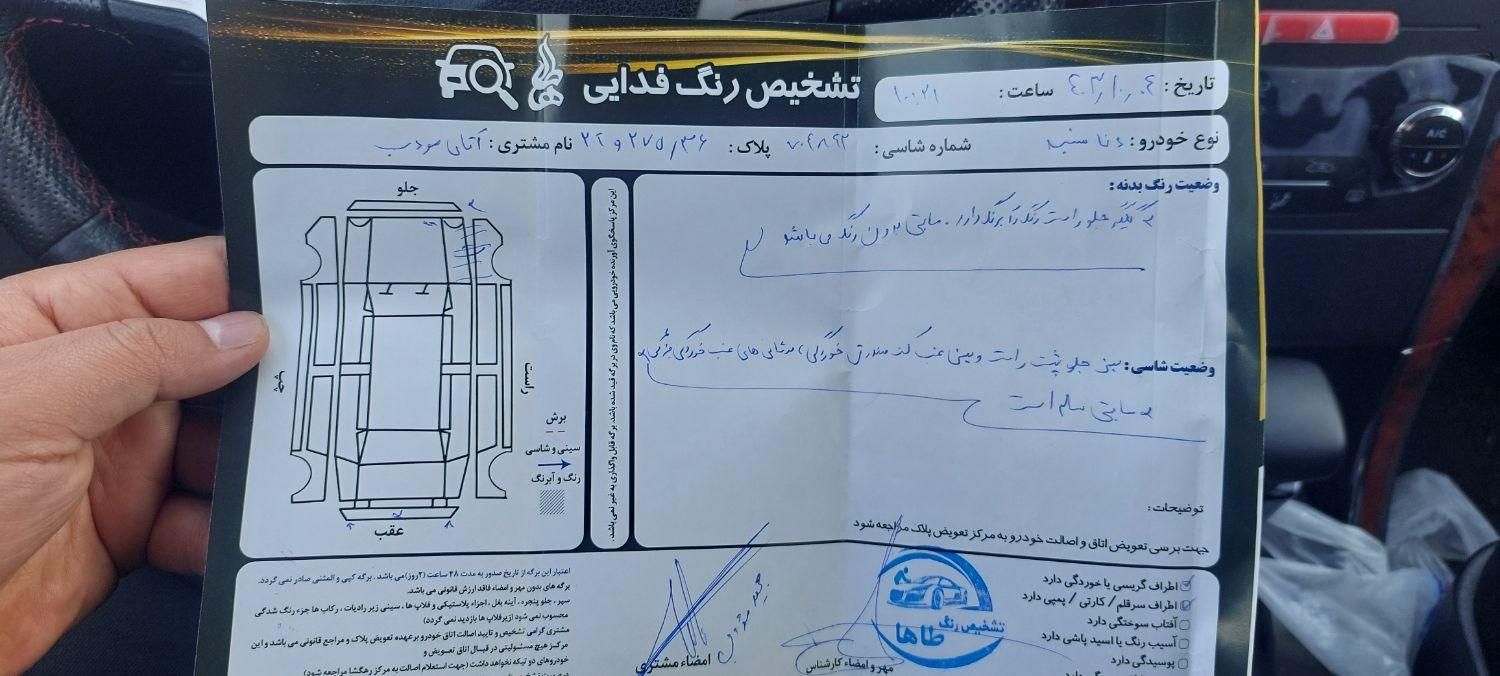 تشخیص رنگ فدایی
تاریخ : ۴۰۳/۱۰/۰۴ ساعت : ۱۰:۲۱
نوع خودرو : دنا سفید شماره شاسی : ۷۰۴۸۹۲ پلاک : ۳۶/ ۲۷۵ و ۲۲ نام مشتری : آقای مودب
وضعیت رنگ بدنه :
گلگیر جلو راست رنگ دارد. مابقی بدون رنگ می باشد
وضعیت شاسی : سینی عقب خوردگی
مابقی سالم است
توضیحات :
جهت برسی تعویض اتاق و اصالت خودرو به مرکز تعویض پلاک مراجعه شود
این مرکز پاسخگوی آورنده خودرویی می باشد که نام وی در برگه قید شده باشد. برگه قابل واگذاری به غیر نمی باشد.
جلو
چپ
راست
برش
سینی و شاسی
رنگ و آبرنگ
عقب
اطراف گریسی یا خوردگی دارد
اطراف سرقلم / کارتی / پمپی دارد
آفتاب سوختگی دارد
آسیب رنگ یا اسید پاشی دارد
پوسیدگی دارد
تشخیص رنگ
طاها
مهر و امضاء کارشناس
امضاء مشتری
اعتبار این برگه از تاریخ صدور به مدت ۴۸ ساعت (۲روز) می باشد . برگه کپی و المثنی صادر نمی گردد.
برگه های بدون مهر و امضاء فاقد ارزش قانونی می باشد.
سپر ، جلو پنجره ، آینه بغل ، اجزاء پلاستیکی و قلاب ها ، سینی زیر رادیات ، رکاب ها جزء رنگ شدگی
محسوب نمی شود (زیرقلاب ها بازدید نمی گردد)
مشتری گرامی تشخیص و تایید اصالت اتاق خودرو برعهده تعویض پلاک و مراجع قانونی می باشد و این
مرکز هیچ مسئولیتی در قبال اتاق تعویض و
خودروهای دو تیکه نخواهد داشت (جهت استعلام اصالت به مرکز رهگشا مراجعه شود)
A/C